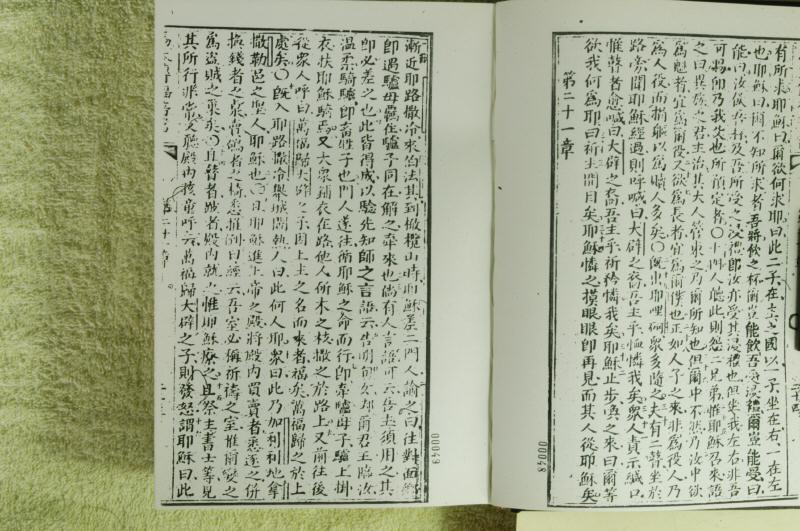 有所求耶穌曰爾欲何求耶曰此二子在主之國以一子坐在右一在左
也耶穌曰爾不知所求者吾將飲之杯爾豈能飲吾受浸禮爾豈能受曰
能曰汝飲吾杯及吾所受之浸禮即汝亦受其浸禮也但坐我左右非吾
可賜仰乃我父也所預定者○十門人聽此則怨二兄弟惟耶穌乃來語
之曰異族之君主治其大人管束之乃爾所知也但爾中不然乃汝中欲
為魁者宜為爾役又欲為長者宜為爾僕也正如人子之來非為役人乃
為人役而捐軀以為贖人多矣○既出耶哩哥眾多隨之夫有二瞽坐於
路旁聞耶穌經過則呼喊曰大辟之裔吾主乎恤憐我矣眾人責示緘口
惟瞽者愈喊曰大辟之裔吾主乎祈矜憐我矣耶穌止步喚之來曰爾等
欲我何為耶曰祈主開目矣耶穌憐之摸眼眼即再見而其人從耶穌矣
第二十一章
00048
漸近耶路撒冷來伯法其到橄欖山時耶穌差二門人諭之曰往對面鄉
即遇驢母羈在驢子同在解之牽來也倘有人言語可云告主須用之其
即必差之也此皆得成以驗先知師之言語云告明旬女郎爾君王臨汝
温柔騎驢即畜牲子也門人遂往循耶穌之命而行即牽驢母子驢上掛
衣扶耶穌騎焉又大眾鋪衣在路他人斫木之枝撒之於路上又前往後
從眾人呼曰萬福歸大辟之子因上主之名而來者福矣萬福歸之於上
處矣○既入耶路撒冷舉城鬧熱人曰此何人耶眾曰此乃加利利地拿
撒勒邑之聖人耶穌也○且耶穌進上帝之殿將殿內買賣者悉逐之併
換錢者之桌賣鴿者之椅悉推倒曰經云吾室必稱祈禱之室惟爾變之
為盜賊之巢矣○且瞽者跛者殿內就之惟耶穌療之且祭主書士等見
其所行非常又聽殿內孩童呼云萬福歸大辟之子則發怒謂耶穌曰此
00049